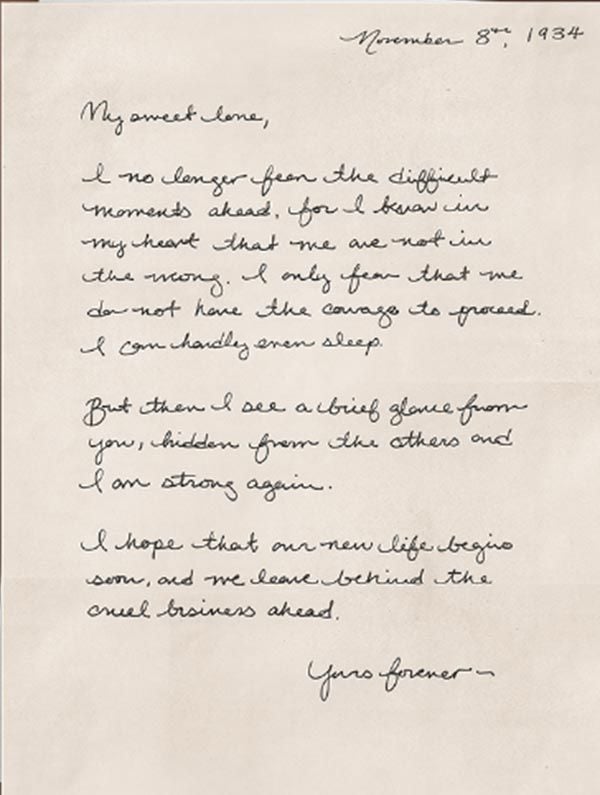 November 8th, 1934
My sweet love,
I no longer fear the difficult
moments ahead, for I know in
my heart that we are not in
the wrong. I only fear that we
do not have the courage to proceed.
I can hardly even sleep.
But then I see a brief glance from
you, hidden from the others and
I am strong again.
I hope that our new life begins
soon, and we leave behind the
cruel business ahead.
Yours forever~